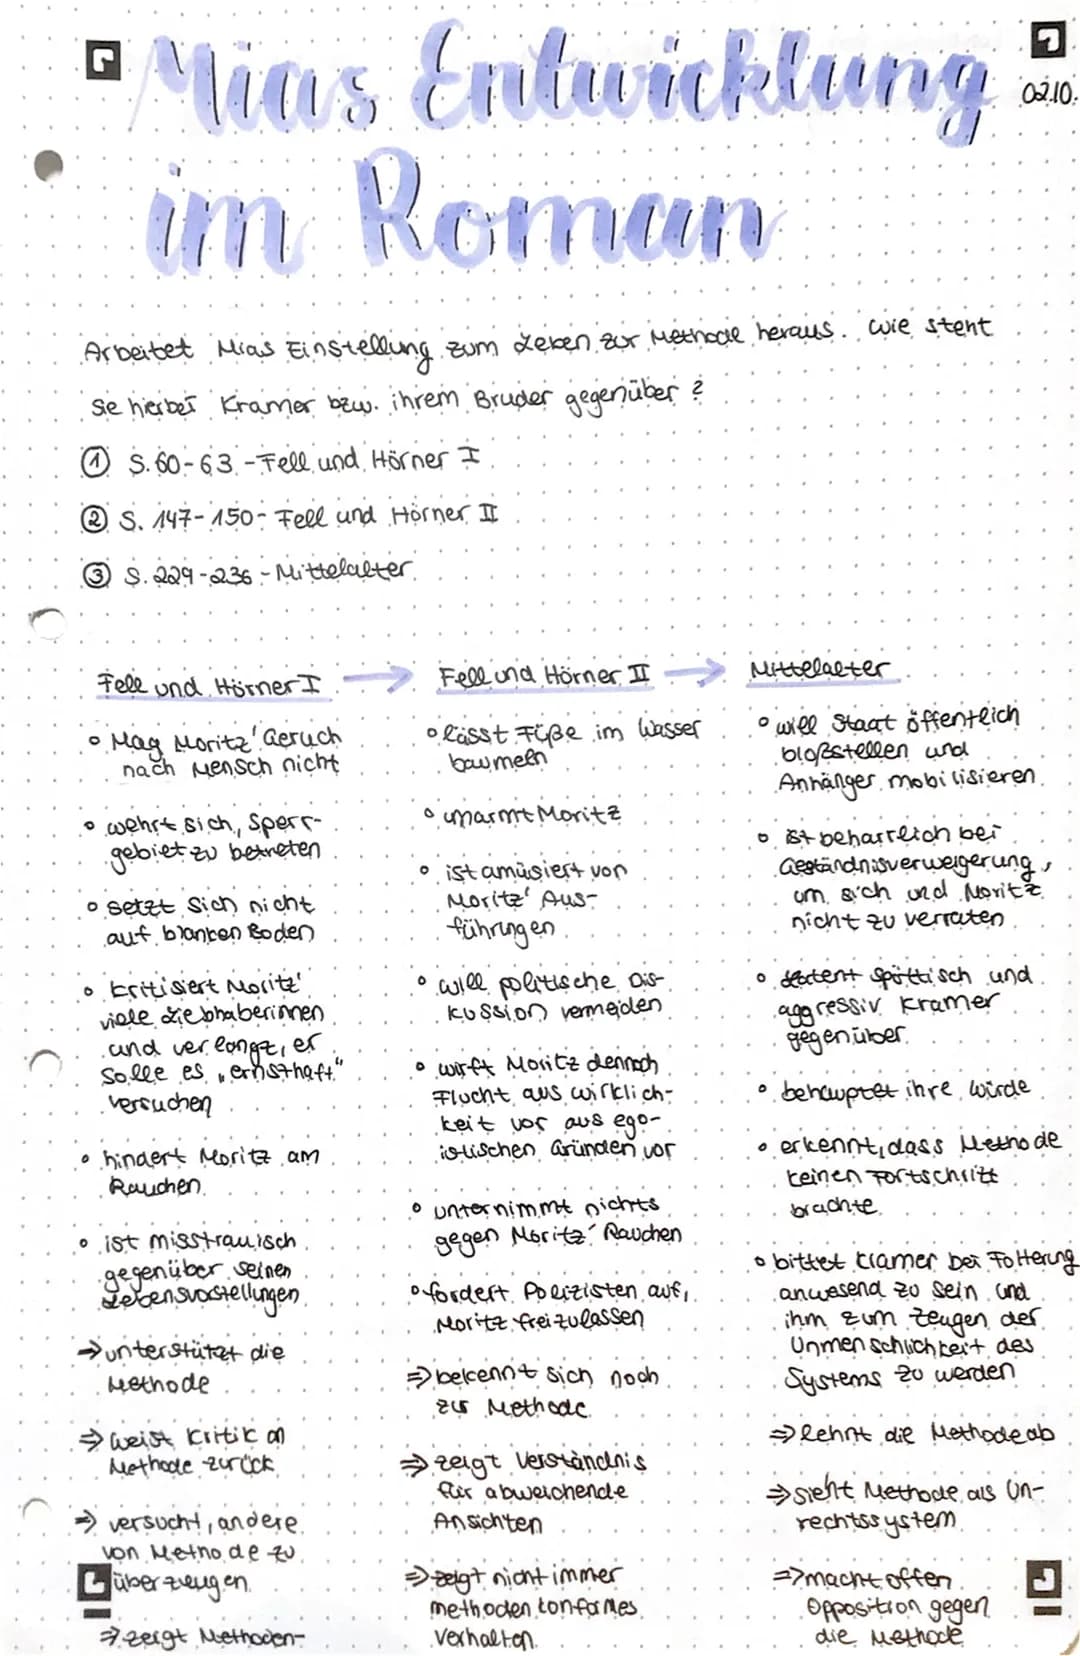 Mias Entwicklung
02.10.
im Roman
Arbeitet Mias Einstellung zum Leben zur Methode heraus. Wie steht
Sie hierbei Kramer bzw. ihrem Bruder gegenüber?
① S.60-63 - Fell und Hörner I
② S. 147-150 - Fell und Hörner II
③ S. 229-236 - Mittelalter
Fell und Hörner I → Fell und Hörner II → Mittelalter
° Mag Moritz' Geruch
nach Mensch nicht
° wehrt sich, Sperr-
gebiet zu betreten
° setzt sich nicht
auf blanken Boden
° kritisiert Moritz'
viele Liebhaberinnen
und verlangt, er
solle es „ernsthaft"
versuchen
° hindert Moritz am
Rauchen
° ist misstrauisch
gegenüber seinen
Lebensvorstellungen
→ unterstützt die
Methode
⇒ weist Kritik an
Methode zurück
⇒ versucht, andere
von Methode zu
überzeugen
⇒ zeigt Methoden-
° lässt Füße im Wasser
baumeln
° umarmt Moritz
° ist amüsiert von
Moritz' Aus-
führungen
° will politische Dis-
kussion vermeiden
° wirft Moritz dennoch
Flucht aus Wirklich-
keit vor aus ego-
istischen Gründen vor
° unternimmt nichts
gegen Moritz' Rauchen
° fordert Polizisten auf,
Moritz freizulassen
⇒ bekennt sich noch
zur Methode
⇒ zeigt Verständnis
für abweichende
Ansichten
⇒ zeigt nicht immer
methodenkonformes
Verhalten
° will Staat öffentlich
bloßstellen und
Anhänger mobilisieren
° ist beharrlich bei
Geständnisverweigerung,
um sich und Moritz
nicht zu verraten
° spöttisch und
aggressiv Kramer
gegenüber
° behauptet ihre Würde
° erkennt, dass Methode
keinen Fortschritt
brachte
° bittet Kramer bei Folterung
anwesend zu sein und
ihm zum Zeugen der
Unmenschlichkeit des
Systems zu werden
⇒ lehnt die Methode ab
⇒ sieht Methode als Un-
rechtssystem
⇒ macht offen
Opposition gegen
die Methode